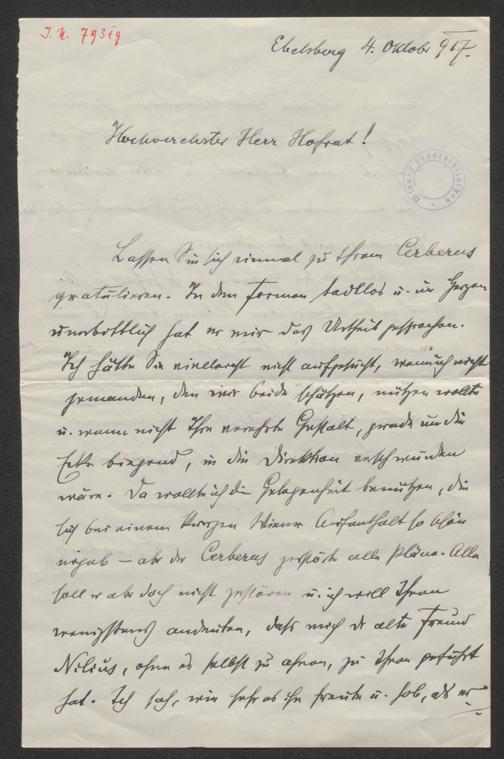 J.N. 79319
Ebelsberg 4. Oktober 917.
Hochverehrter Herr Hofrat!
Wiener Stadtbibliothek
Lassen Sie sich einmal zu Ihrem Cerberus
gratulieren. In den Formen tadllos u. im Herzen
unerbittlich hat er mir das Urtheil gesprochen.
Ich hätte Sie vielleicht nicht aufgesucht, wenn ich nicht
jemanden, den wir beide schätzen, nützen wollte
u. wenn nicht Ihre verehrte Gestalt, gerade um die
Ecke biegend, in die Direktion verschwunden
wäre. Da wollte ich die Gelegenheit benützen, die
sich bei einem kurzen Wiener Aufenthalt so schön
ergab – aber der Cerberus zerstörte alle Pläne. Alle
soll er aber doch nicht zerstören u. ich will Ihnen
wenigstens andeuten, dass mich der alte Freund
Nilius, ohne es selbst zu ahnen, zu Ihnen geführt
hat. Ich sah, wie sehr es ihn freute u. hob, als er